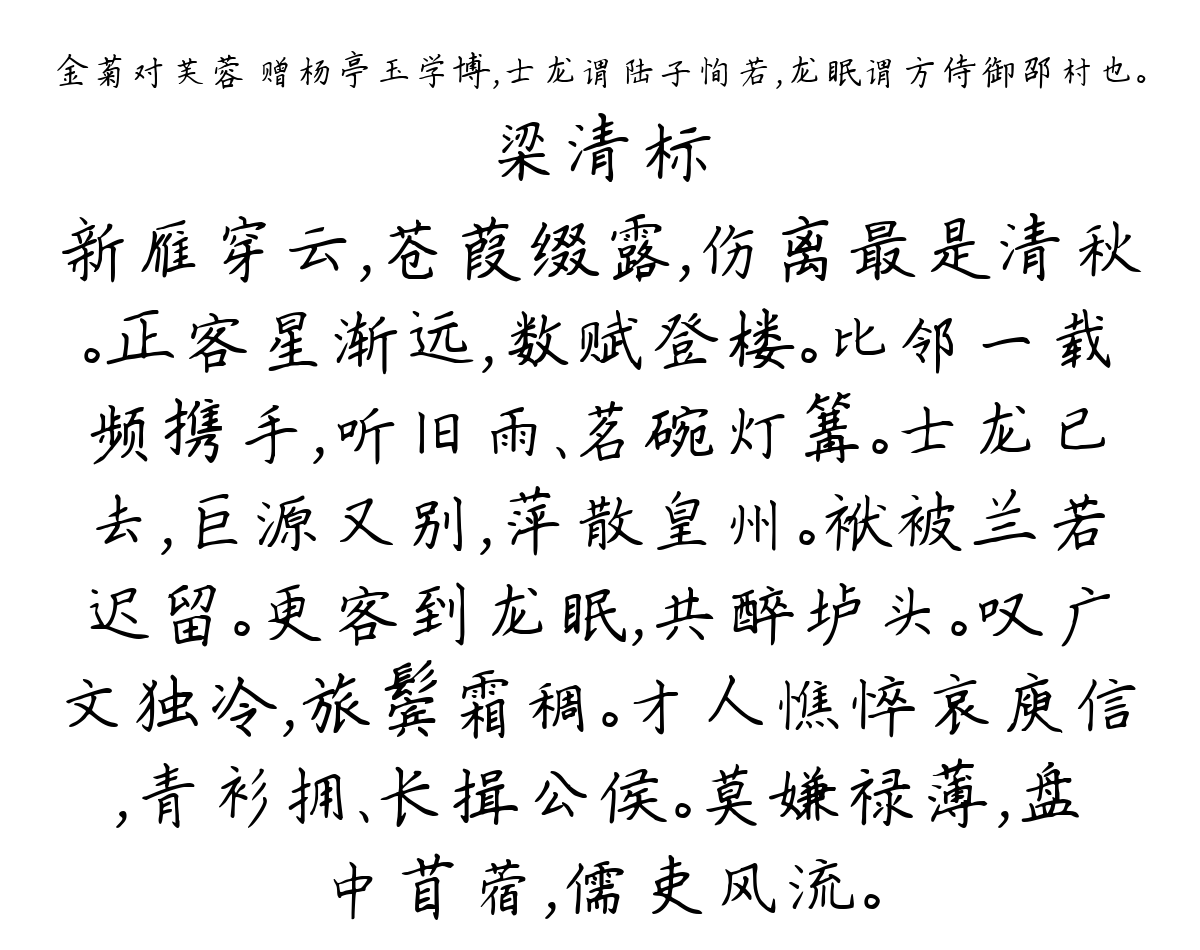 金菊对芙蓉 赠杨亭玉学博,士龙谓陆子恂若,龙眠谓方侍御邵村也。
梁清标
新雁穿云,苍葭缀露,伤离最是清秋
。正客星渐远,数赋登楼。比邻一载
频携手,听旧雨、茗碗灯篝。士龙已
去,巨源又别,萍散皇州。袱被兰若
迟留。更客到龙眠,共醉垆头。叹广
文独冷,旅鬓霜稠。才人憔悴哀庾信
,青衫拥、长揖公侯。莫嫌禄薄,盘
中苜蓿,儒吏风流。